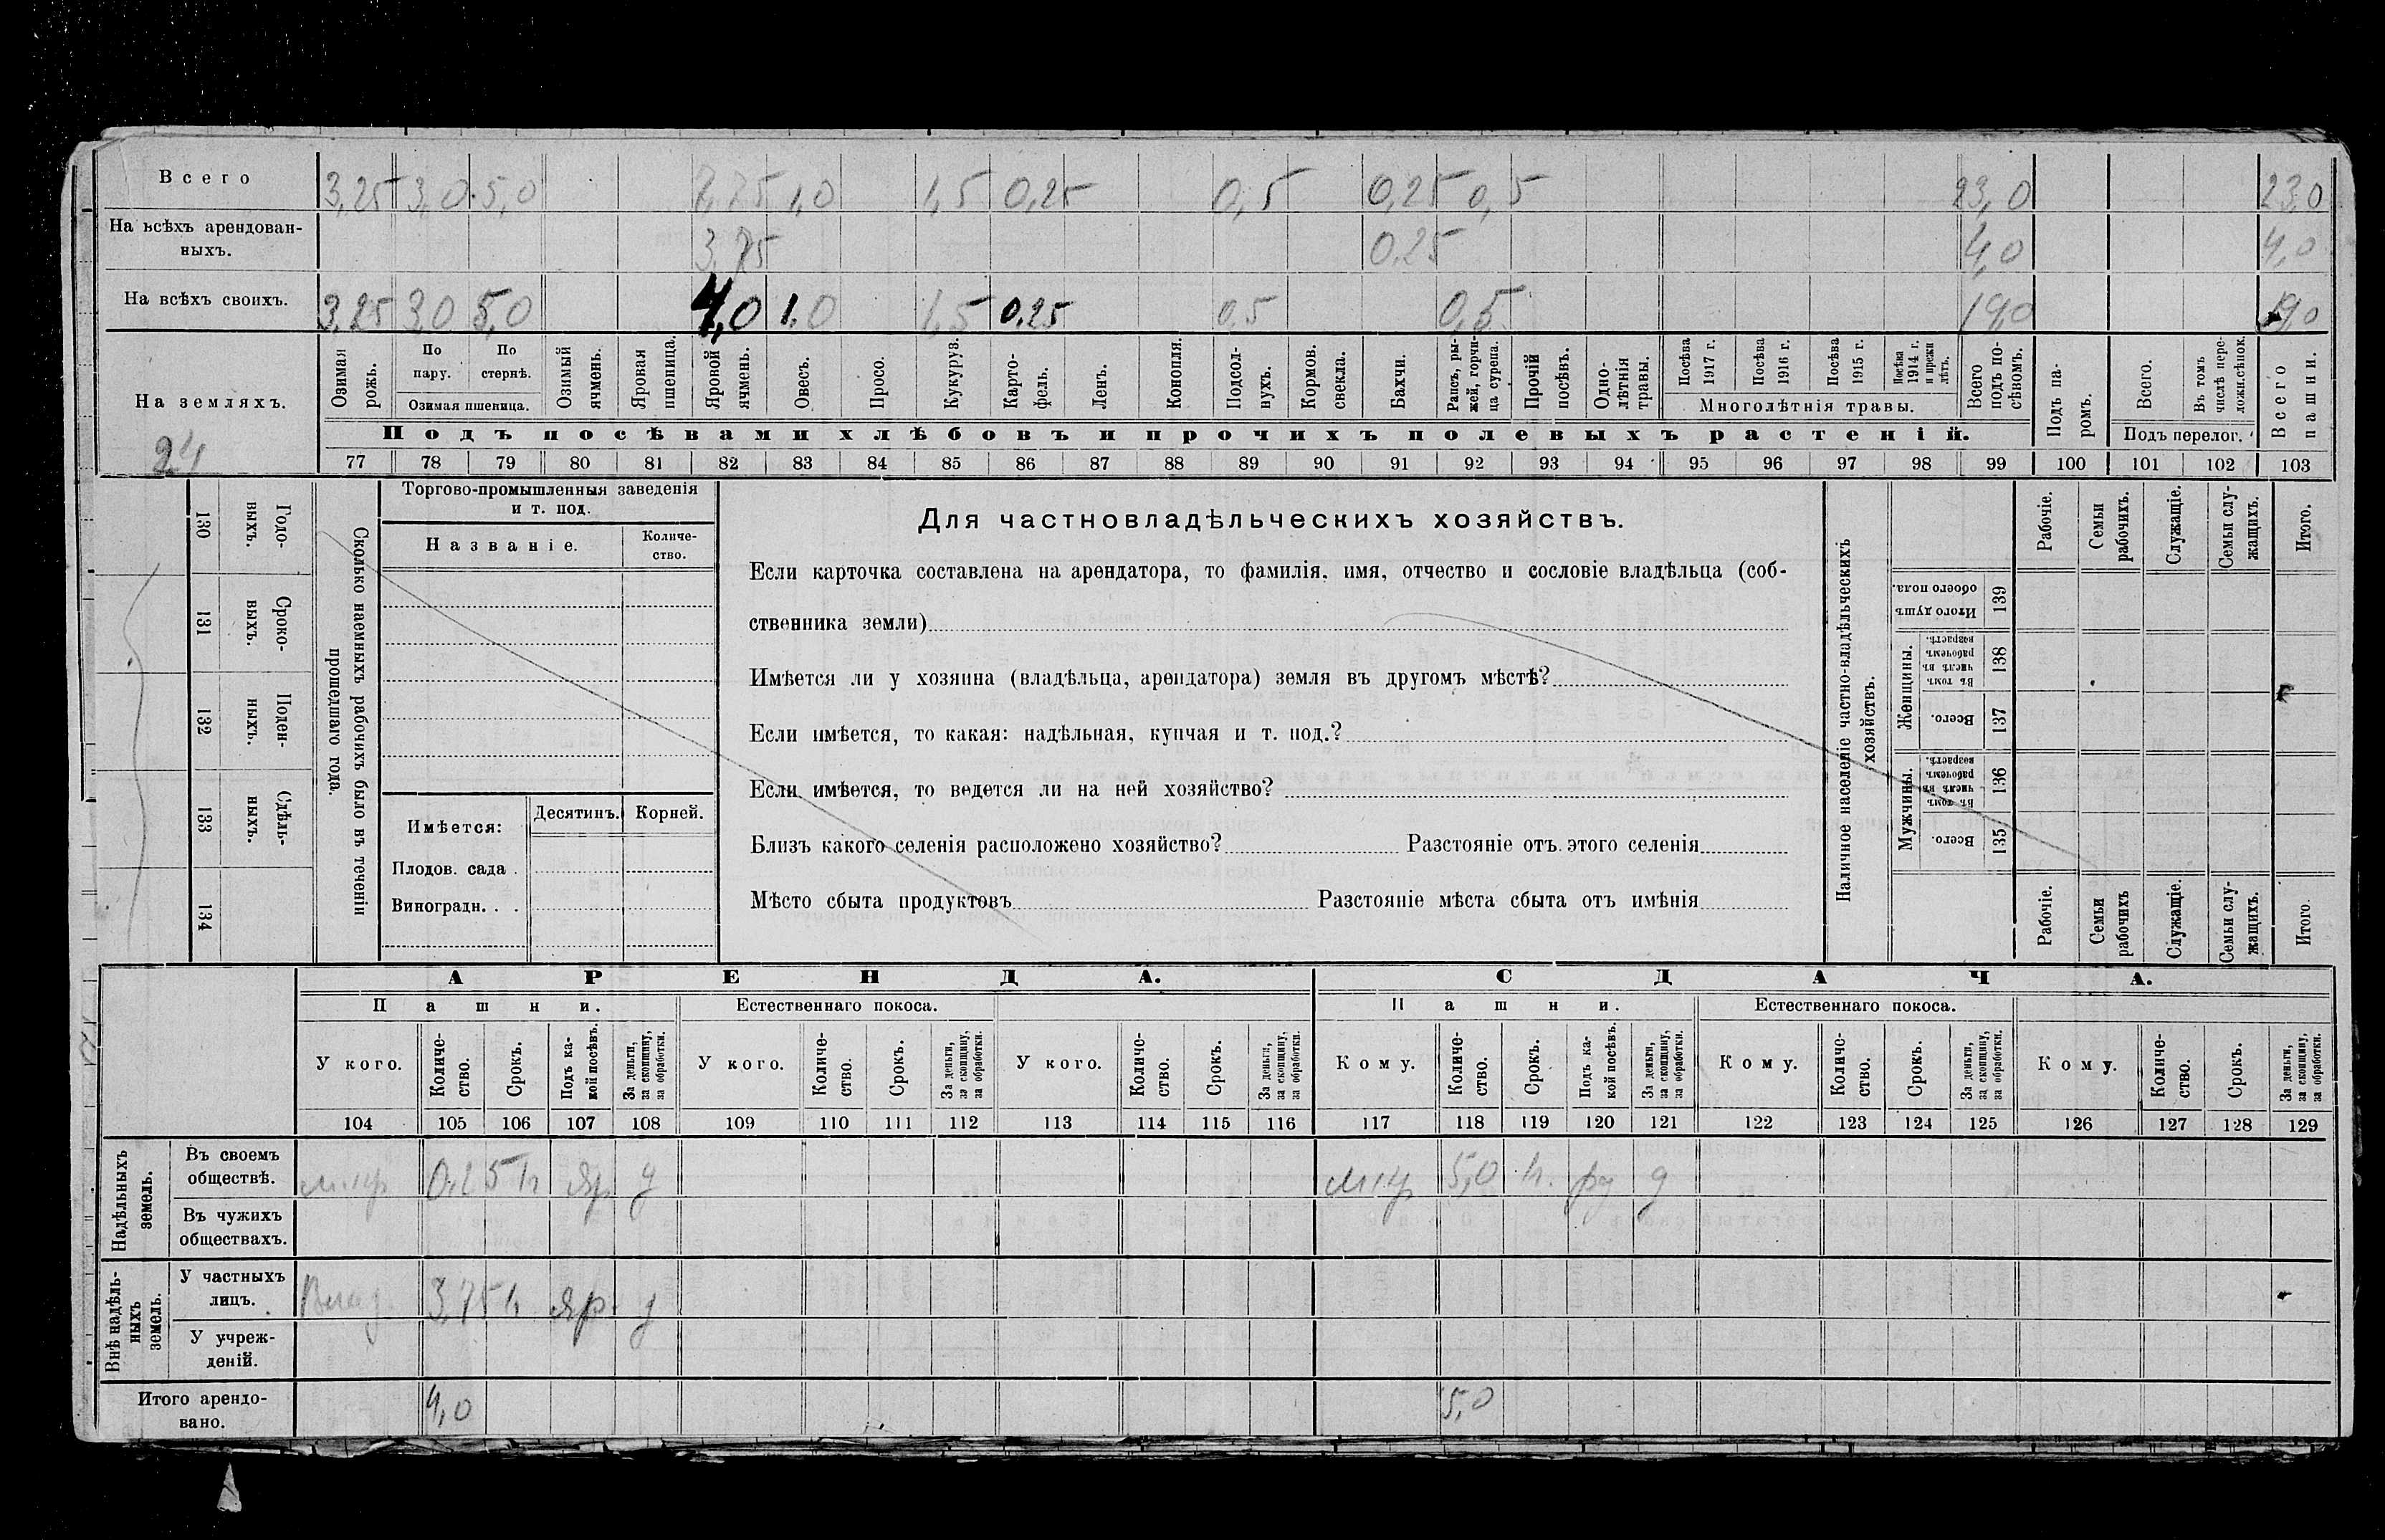 Всего 3,25 3,0 5,0 7,75 1,0 1,5 0,25 0,5 0,25 0,5 23,0 23,0
На всѣхъ арендован-
ныхъ. 3,75 0,25 4,0 4,0
На всѣхъ своихъ. 3,25 3,0 5,0 4,0 1,0 1,5 0,25 0,5 0,5 19,0 19,0
На земляхъ.
24
Озимая рожь.
По пару.
По стернѣ.
Озимая пшеница.
Озимый ячмень.
Яровая пшеница.
Яровой ячмень.
Овесъ.
Просо.
Кукуруз.
Карто-
фель.
Ленъ.
Конопля.
Подсол-
нухъ.
Кормов. свекла.
Бахчи.
Рапсъ, ры-
жей, горчи-
ца сурепа.
Прочій посѣвъ.
Одно-
лѣтнія травы.
Посѣва 1917 г.
Посѣва 1916 г.
Посѣва 1915 г.
Посѣва 1914 г. и прежн лѣтъ.
Многолѣтнія травы.
Всего подъ по-
сѣвомъ.
Подъ па-
ромъ.
Всего.
Въ томъ числѣ пере-
ложн.сѣнок.
Подъ перелог.
Всего пашни.
Подъ посѣвами хлѣбовъ и прочихъ полевыхъ растеній.
77 78 79 80 81 82 83 84 85 86 87 88 89 90 91 92 93 94 95 96 97 98 99 100 101 102 103
130 Годо-
выхъ.
131 Сроко-
выхъ.
132 Поден-
ныхъ.
133 Сдѣль-
ныхъ.
134
Сколько наемныхъ рабочихъ было въ теченіи
прошедшаго года.
Торгово-промышленныя заведенія
и т. под.
Названіе.
Количе-
ство.
Имѣется:
Десятинъ.
Корней.
Плодов. сада .
Виноградн. . .
Для частновладѣльческихъ хозяйствъ.
Если карточка составлена на арендатора, то фамилія, имя, отчество и сословіе владѣльца (соб-
ственника земли)
Имѣется ли у хозяина (владѣльца, арендатора) земля въ другомъ мѣстѣ?
Если имѣется, то какая: надѣльная, купчая и т. под.?
Если имѣется, то ведется ли на ней хозяйство?
Близъ какого селенія расположено хозяйство? Разстояніе отъ этого селенія
Мѣсто сбыта продуктовъ Разстояніе мѣста сбыта отъ имѣнія
Наличное населеніе частно-владѣльческихъ
хозяйствъ.
Рабочіе.
Семьи рабочихъ.
Служащіе.
Семьи слу-
жащихъ.
Итого.
Итого душ обоего пола. 139
Женщины.
Въ томъ числѣ въ рабочемъ возрастѣ. 138
Всего. 137
Мужчины.
Въ томъ числѣ въ рабочемъ возрастѣ. 136
Всего. 135
Рабочіе.
Семьи рабочихъ
Служащіе.
Семьи слу-
жащихъ.
Итого.
АРЕНДА. СДАЧА.
Пашни. Естественнаго покоса. Пашни. Естественнаго покоса.
У кого.
Количе-
ство.
Срокъ.
Подъ ка-
кой посѣвъ.
За деньги,
за скопщину,
за обработки.
У кого.
Количе-
ство.
Срокъ.
За деньги,
за скопщину,
за обработки.
У кого.
Количе-
ство.
Срокъ.
За деньги,
за скопщину,
за обработки.
Кому.
Количе-
ство.
Срокъ.
Подъ ка-
кой посѣвъ.
За деньги,
за скопщину,
за обработки.
Кому.
Количе-
ство.
Срокъ.
За деньги,
за скопщину,
за обработки.
Кому.
Количе-
ство.
Срокъ.
За деньги,
за скопщину,
за обработки.
104 105 106 107 108 109 110 111 112 113 114 115 116 117 118 119 120 121 122 123 124 125 126 127 128 129
Надѣльныхъ
земель.
Въ своемъ
обществѣ. 0,25 яр д 5,0 д
Въ чужихъ
обществахъ.
Внѣ надѣль-
ныхъ
земель.
У частныхъ
лицъ. 3,75 яр. д
У учреж-
деній.
Итого арендо-
вано. 4,0 5,0